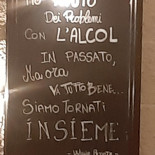 Ho AVUTO
Dei Problemi
con L'ALCOL
IN PASSATO,
Ma ora
Va TUTTO BENE...
SIAMO TORNATI
INSIEME